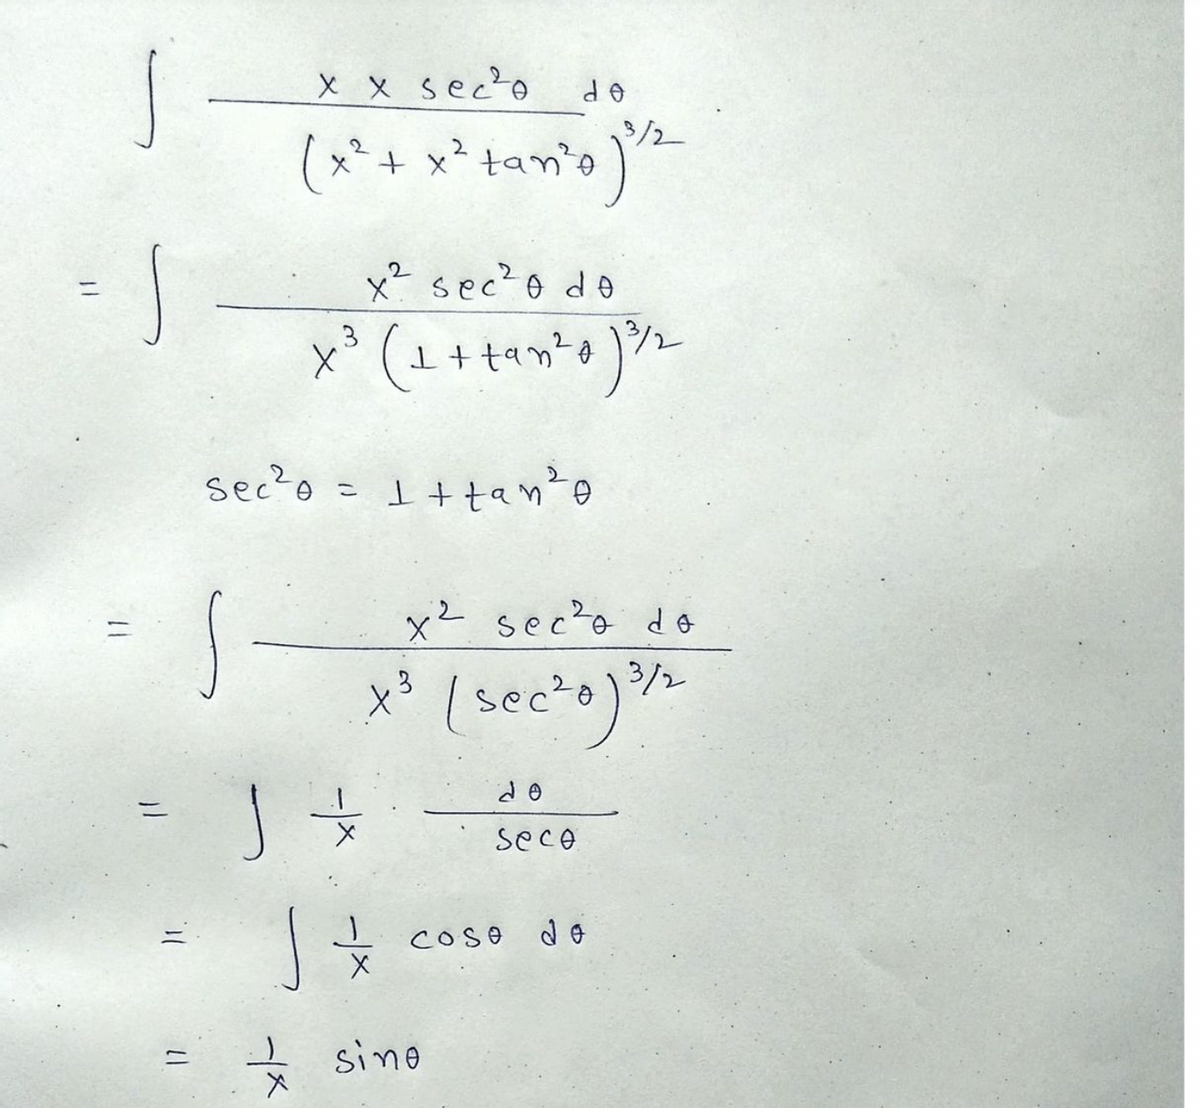 ∫ x x sec²θ dθ / (x² + x² tan²θ)^3/2
= ∫ x² sec²θ dθ / x³ (1 + tan²θ)^3/2
sec²θ = 1 + tan²θ
= ∫ x² sec²θ dθ / x³ (sec²θ)^3/2
= ∫ 1/x dθ / secθ
= ∫ 1/x cosθ dθ
= 1/x sinθ